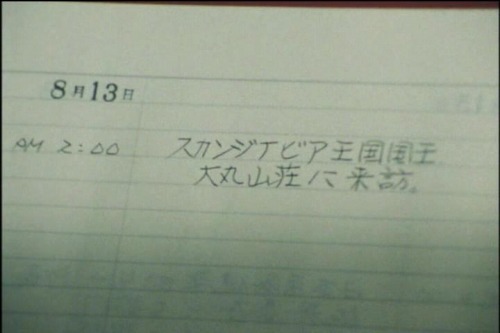 8月13日
AM 2:00 スカンジナビア王国国王
大丸山荘に来訪。